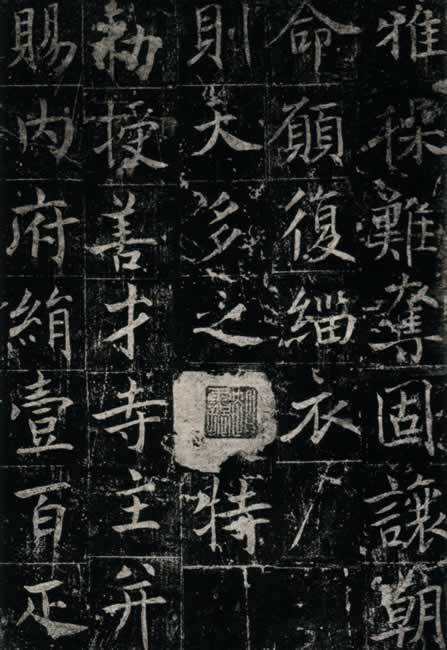 雅操難奪固讓朝
命願復緇衣
則天多之特
勑授善才寺主并
賜内府絹壹百疋